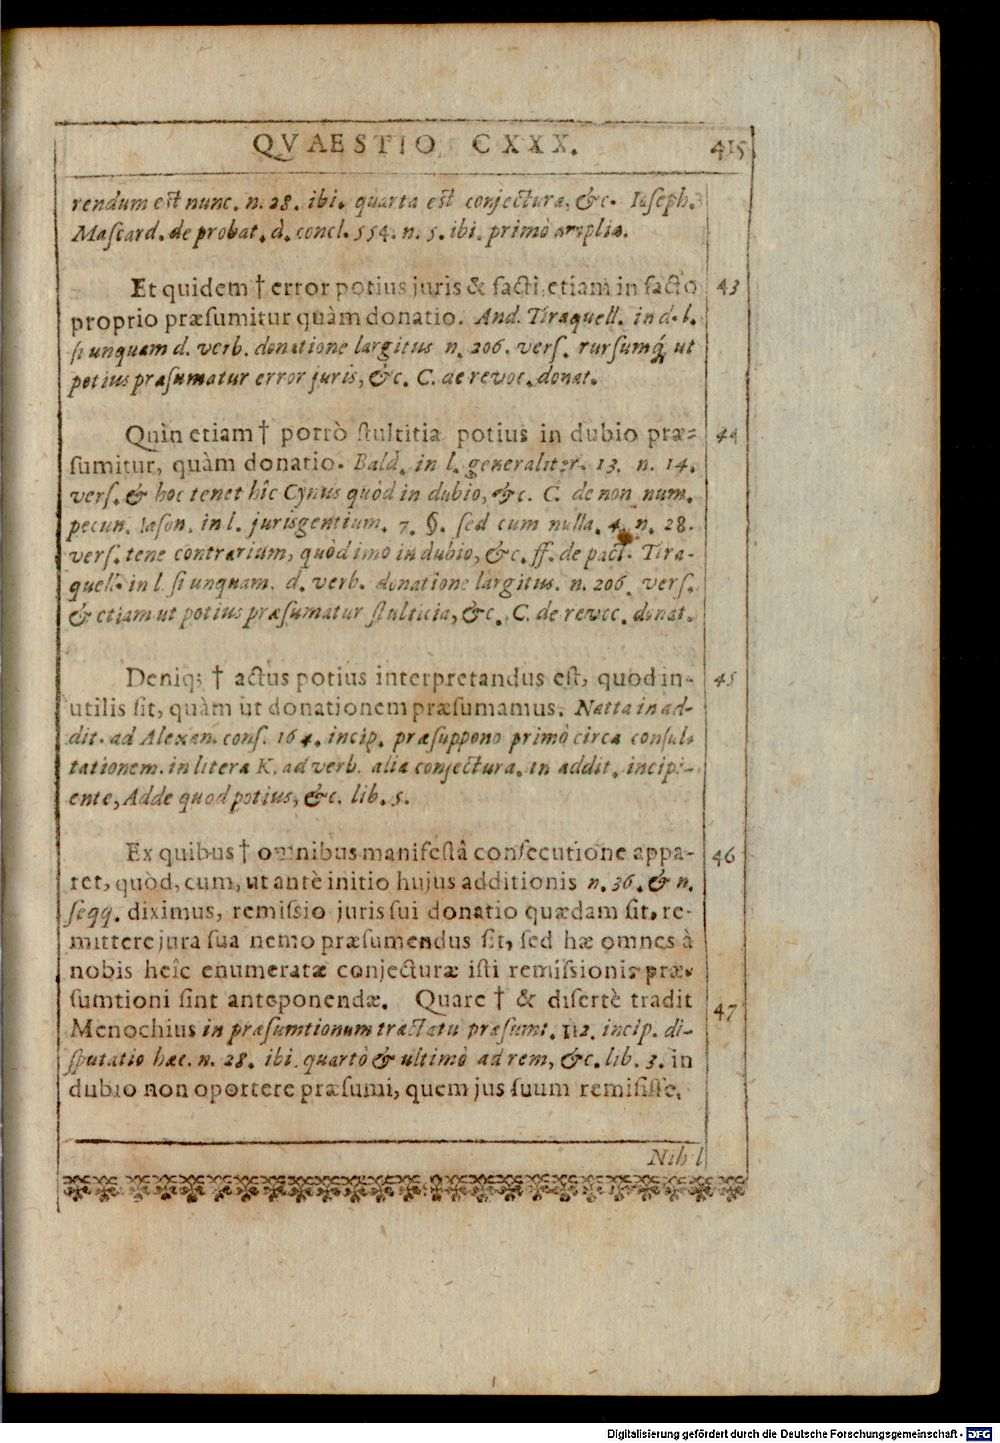 QVAESTIO CXXX. 415
rendum est nunc. n. 28. ibi. quarta est conjectura, &c. Ioseph.
Mascard. de probat. d. concl. 554. n. 5. ibi. primò amplia.
Et quidem † error potius juris & facti, etiam in facto 43
proprio præsumitur quàm donatio. And. Tiraquell. in d. l.
si unquam d. verb. donatione largitus n. 206. vers. rursumq́ ut
potius præsumatur error juris, &c. C. de revoc. donat.
Quin etiam † porrò stultitia potius in dubio præ- 44
sumitur, quàm donatio. Bald. in l. generaliter. 13. n. 14.
vers. & hoc tenet hîc Cynus quòd in dubio, &c. C. de non num.
pecun. Iason. in l. jurisgentium. 7. §. sed cum nulla. 4. n. 28.
vers. tene contrarium, quòd imo in dubio, &c. ff. de pact. Tira-
quell. in l. si unquam. d. verb. donatione largitus. n. 206. vers.
& etiam ut potius præsumatur stulticia, &c. C. de revoc. donat.
Deniq; † actus potius interpretandus est, quod in- 45
utilis sit, quàm ut donationem præsumamus. Natta in ad-
dit. ad Alexan. cons. 164. incip. præsuppono primò circa consul-
tationem. in litera K. ad verb. alia conjectura. in addit. incipi-
ente, Adde quod potius, &c. lib. 5.
Ex quibus † omnibus manifestâ consecutione appa- 46
ret, quòd, cum, ut antè initio hujus additionis n. 36. & n.
seqq. diximus, remissio juris sui donatio quædam sit, re-
mittere jura sua nemo præsumendus sit, sed hæ omnes à
nobis heîc enumeratæ conjecturæ isti remissionis præ-
sumtioni sint anteponendæ. Quare † & disertè tradit 47
Menochius in præsumtionum tractatu præsumt. 112. incip. di-
sputatio hæc. n. 28. ibi. quartò & ultimò ad rem, &c. lib. 3. in
dubio non oportere præsumi, quem jus suum remisisse.
Nihil
Digitalisierung gefördert durch die Deutsche Forschungsgemeinschaft - DFG